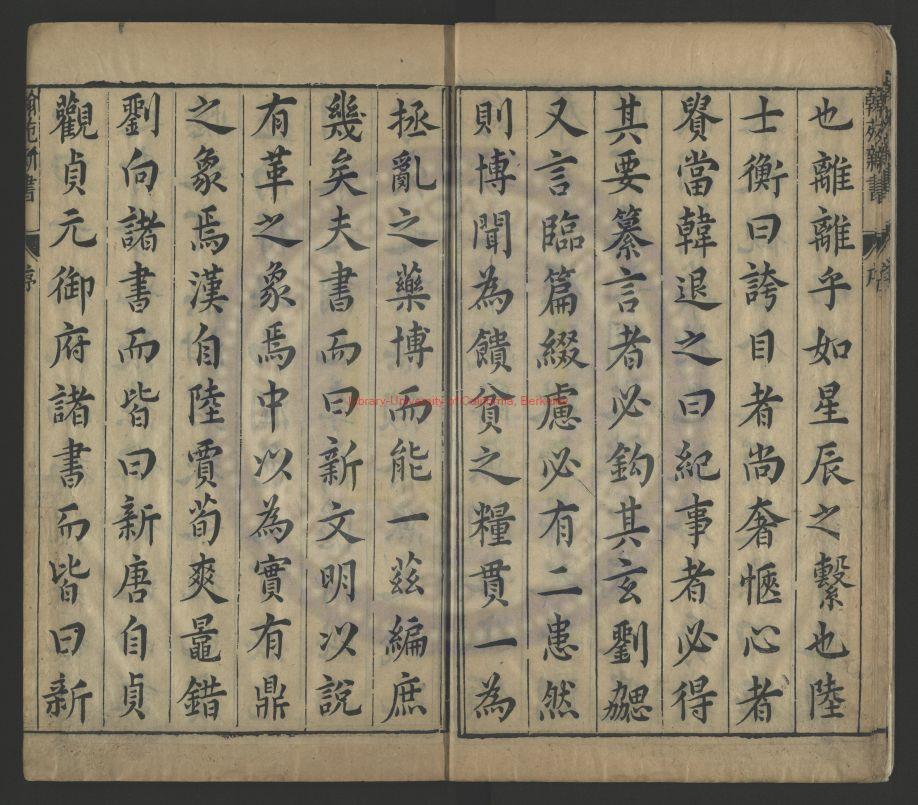 翰苑新書
序
也離離乎如星辰之繫也陸
士衡曰誇目者尚奢愜心者
貴當韓退之曰紀事者必得
其要纂言者必鈎其玄劉勰
又言臨篇綴慮必有二患然
則博聞為饋貧之糧貫一為
拯亂之藥博而能一茲編庶
幾矣夫書而曰新文明以說
有革之象焉中以為實有鼎
之象焉漢自陸賈荀爽鼂錯
劉向諸書而皆曰新唐自貞
觀貞元御府諸書而皆曰新
翰苑新書
序
Library-University of California, Berkeley